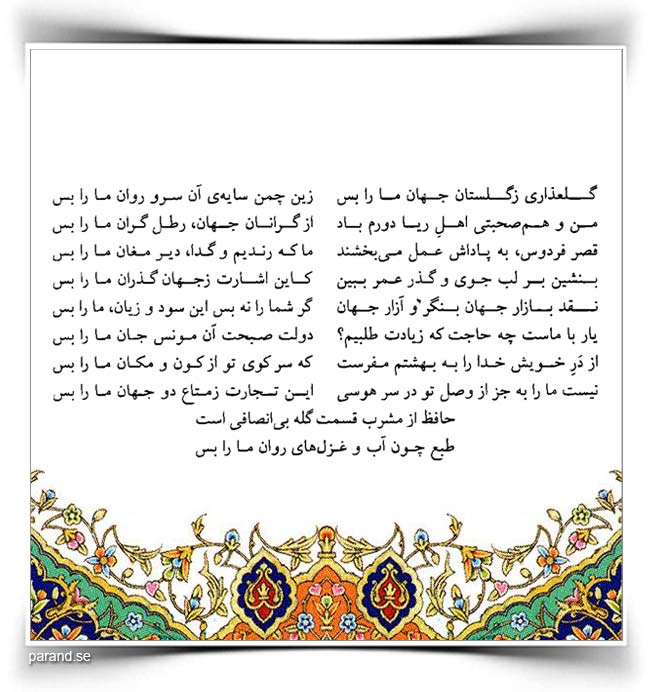 گلعذاری زگلستان جهان ما را بس    زین چمن سایه‌ی آن سرو روان ما را بس
من و هم‌صحبتی اهلِ ریا دورم باد    از گرانان جهان، رطل گران ما را بس
قصر فردوس، به پاداش عمل می‌بخشند    ما که رندیم و گدا، دیر مغان ما را بس
بنشین بر لب جوی و گذر عمر ببین    کاین اشارت زجهان گذران ما را بس
نقد بازار جهان بنگر و آزار جهان    گر شما را نه بس این سود و زیان، ما را بس
یار با ماست چه حاجت که زیادت طلبیم؟    دولت صحبت آن مونس جان ما را بس
از دَرِ خویش خدا را به بهشتم مفرست    که سر کوی تو از کون و مکان ما را بس
نیست ما را به جز از وصل تو در سر هوسی    این تجارت زمتاع دو جهان ما را بس
حافظ از مشرب قسمت گله بی‌انصافی است
طبع چون آب و غزل‌های روان ما را بس
parand.se